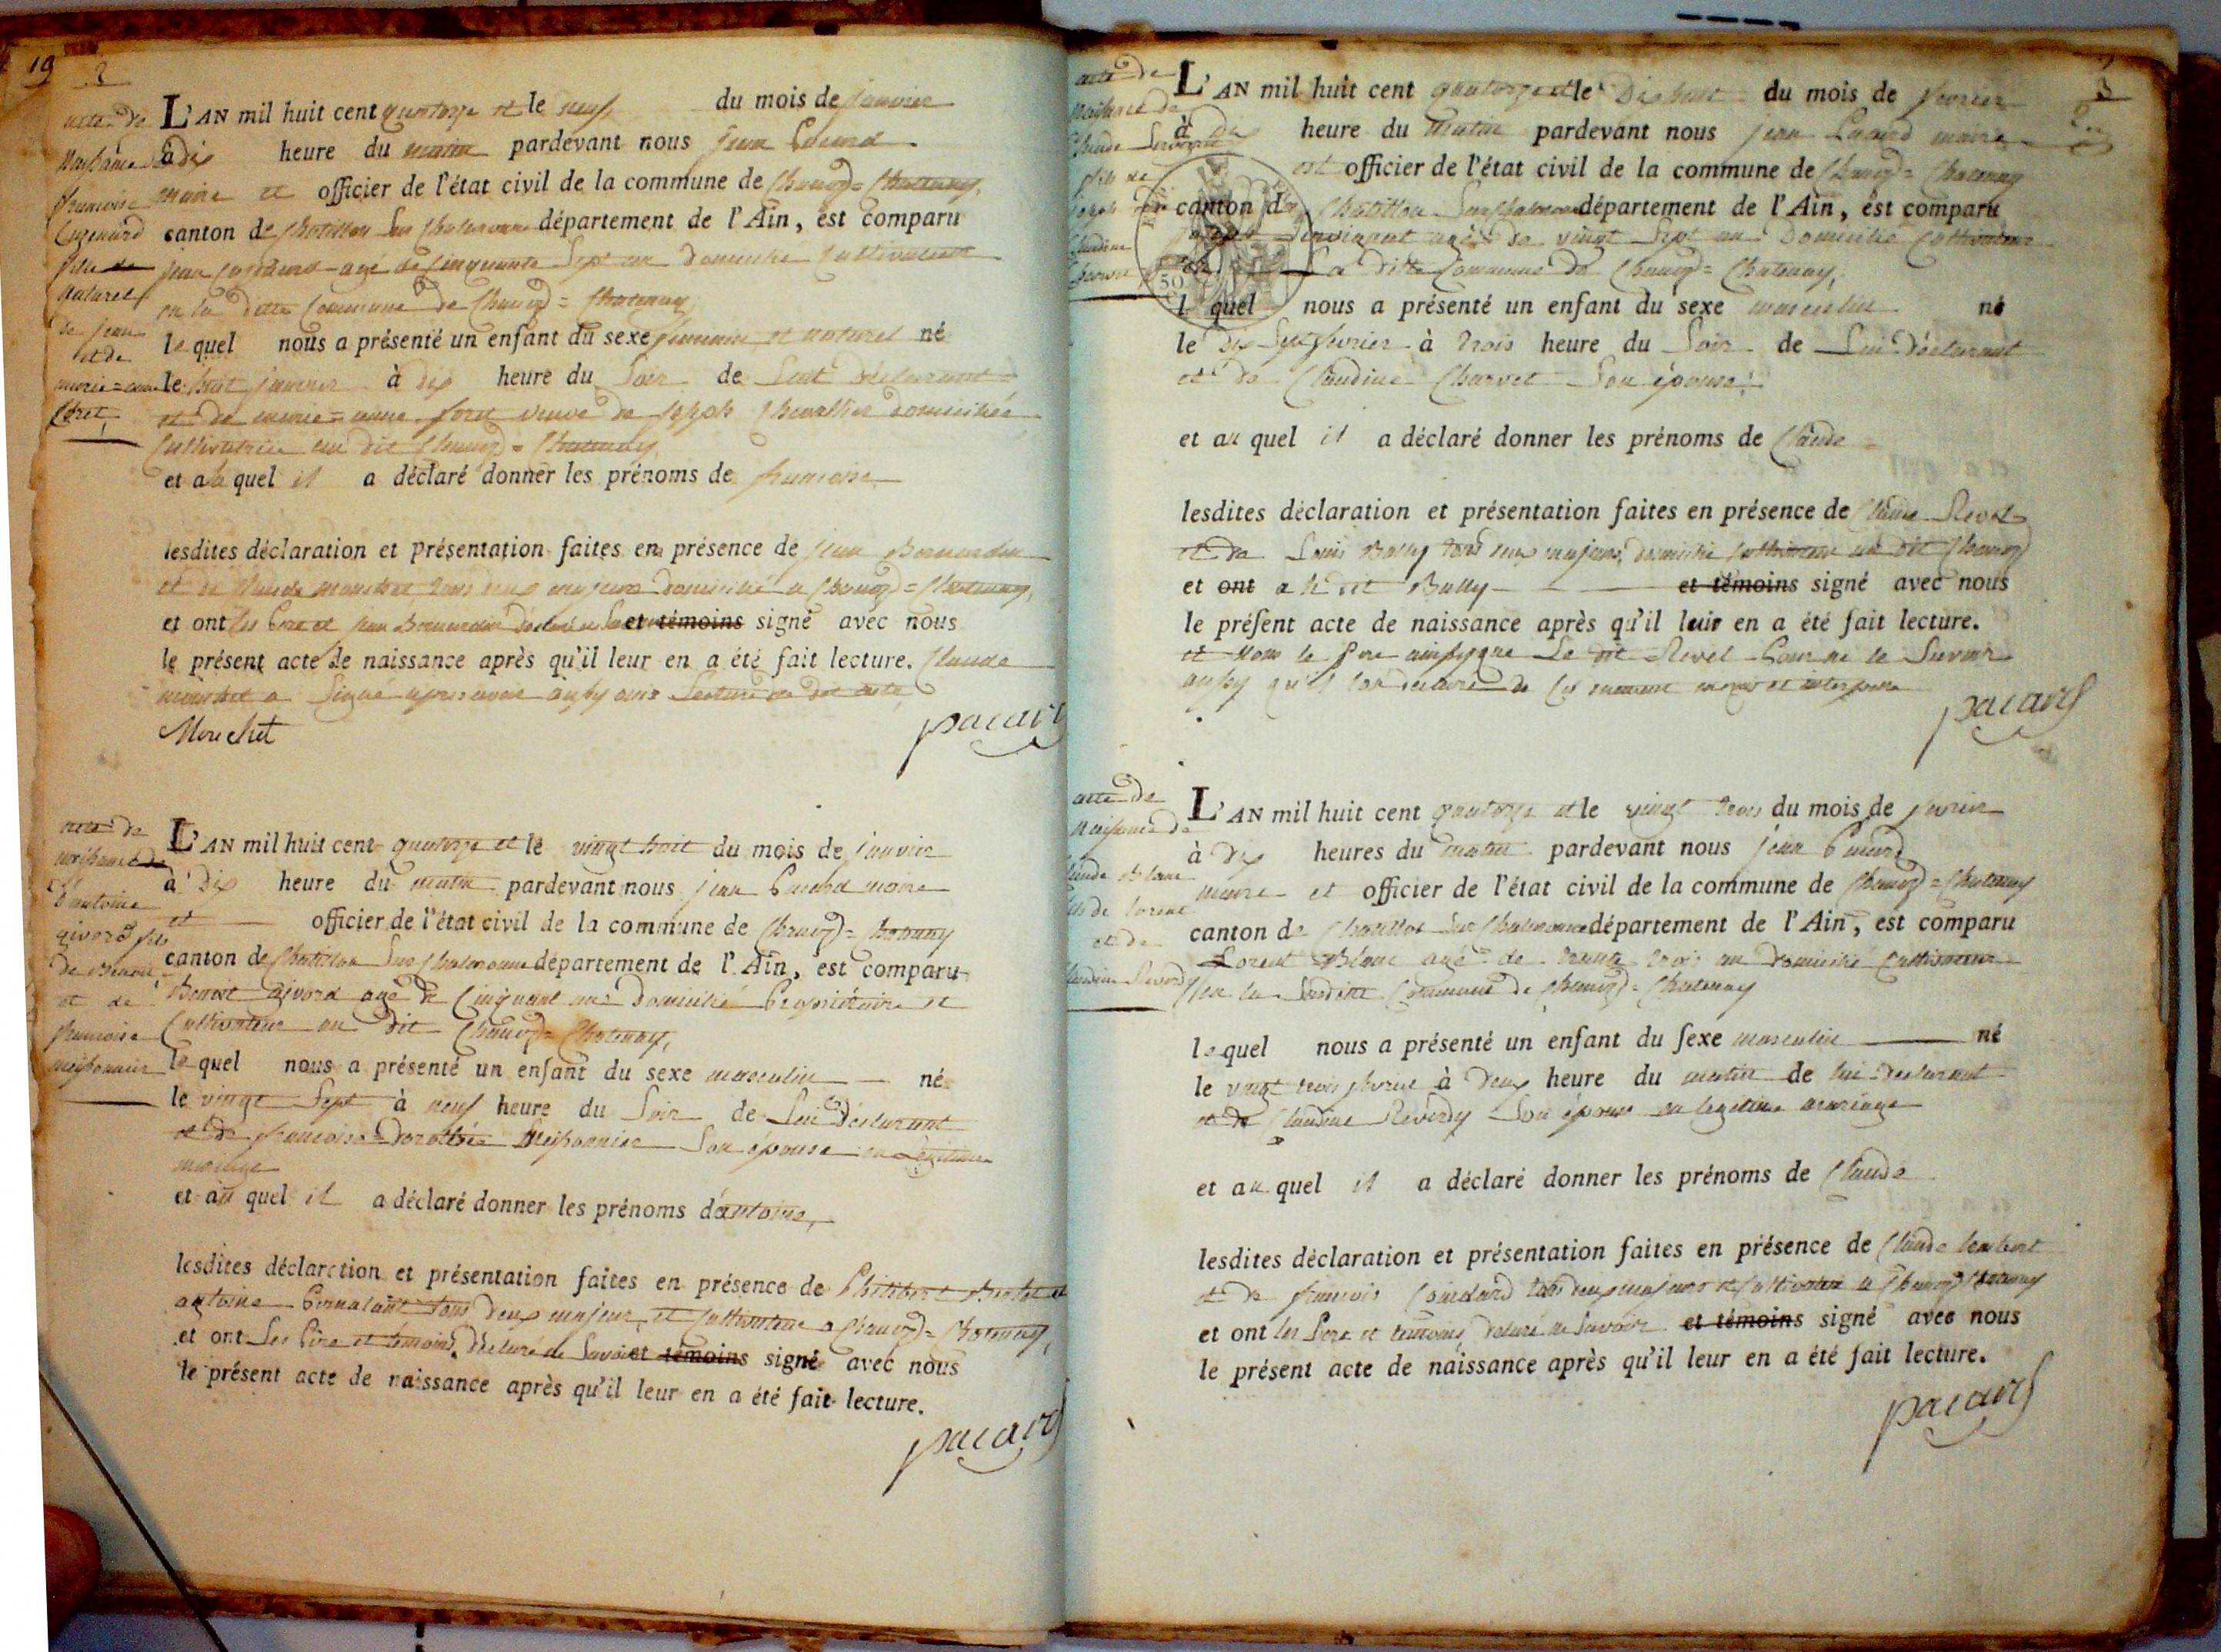 19
2
acte de
naissance de
françoise
fille de
naturel
de jean
et de
marie=anne
foret
L'AN mil huit cent quatorze et le neuf du mois de janvier
à dix heure du matin pardevant nous jean pacard
maire et officier de l'état civil de la commune de Chanoz=Chatenay,
canton de Chatillon sur Chalaronne département de l'Ain, est comparu
jean agé de Cinquante Sept an domicilié Cultivateur
en la ditte Commune de Chanoz=Chatenay,
lequel nous a présenté un enfant du sexe feminin et naturel né
le huit janvier à dix heure du Soir de declarant
et de marie=anne foret veuve de joseph Chevallier domiciliée
Cultivatrice au dit Chanoz=Chatenay,
et a la quel il a déclaré donner les prénoms de françoise
lesdites déclaration et présentation faites en présence de jean Bernardin
et de Claude mouchet tous deux majeurs domicilié a Chanoz=Chatenay,
et ont les pere et jean Bernardin déclaré ne et témoins signé avec nous
le présent acte de naissance après qu'il leur en a été fait lecture. Claude
mouchet a Signé apres avoir aussy ouis Lecture du dit acte,
Mouchet
pacard
acte de
naissance de
d'antoine
givord fils
de Benoit
et de
françoise
meissonnier
L'AN mil huit cent quatorze et le vingt huit du mois de janvier
à dix heure du matin pardevant nous jean pacard maire
et officier de l'état civil de la commune de Chanoz=Chatenay
canton de Chatillon sur Chalaronne département de l'Ain, est comparu
Benoit givord agé de Cinquant ans Domicilié proprietaire et
Cultivateur au dit Chanoz=Chatenay,
lequel nous a présenté un enfant du sexe masculin né
le vingt Sept à neuf heure du Soir de Lui déclarant
et de françoise=Dorothée Meissonnier Son épouse en Légitime
mariage
et au quel il a déclaré donner les prénoms d'antoine,
lesdites déclaration et présentation faites en présence de Philibert et
antoine tous deux majeur et Cultivateur a Chanoz=Chatenay,
et ont Les Pere et témoins déclaré ne Savoir et témoins signé avec nous
le présent acte de naissance après qu'il leur en a été fait lecture.
pacard
3
acte de
naissance de
Claude
fils de
joseph
Claudine
Charvet
L'AN mil huit cent quatorze et le Dix huit du mois de fevrier
à dix heure du matin pardevant nous jean pacard maire
est officier de l'état civil de la commune de Chanoz=Chatenay
canton de Chatillon sur Chalaronne département de l'Ain, est comparu
agé de vingt Sept an Domicilié Cultivateur
La ditte Commune de Chanoz=Chatenay,
lequel nous a présenté un enfant du sexe masculin né
le dix Sept fevrier à trois heure du Soir de Lui déclarant
et de Claudine Charvet Son épouse
et au quel il a déclaré donner les prénoms de Claude
lesdites déclaration et présentation faites en présence de Claude Revel
et de Louis Bully tous deux majeurs, domicilié Cultivateur au dit Chanoz
et ont a le dit Bully et témoins signé avec nous
le présent acte de naissance après qu'il leur en a été fait lecture.
et Non le pere ainsy que Le dit Revel pour ne le Savoir
aussy qu'il l'on declaré de
pacard
acte de
naissance de
Claude Blanc
fils de Lorent
et de
Claudine Reverdy
L'AN mil huit cent quatorze et le vingt trois du mois de fevrier
à dix heures du matin pardevant nous jean pacard
maire et officier de l'état civil de la commune de Chanoz=Chatenay
canton de Chatillon sur Chalaronne département de l'Ain, est comparu
Lorent Blanc agé de trente trois an domicilié Cultivateur
en la susditte Commune de Chanoz=Chatenay
lequel nous a présenté un enfant du sexe masculin né
le vingt trois fevrier à deux heure du matin de lui declarant
et de Claudine Reverdy Son épouse en legitime mariage
et au quel il a déclaré donner les prénoms de Claude
lesdites déclaration et présentation faites en présence de Claude
et de francois tous deux majeurs et Cultivateur a Chanoz Chatenay
et ont les Pere et temoins déclaré ne Savoir et témoins signé avec nous
le présent acte de naissance après qu'il leur en a été fait lecture.
pacard